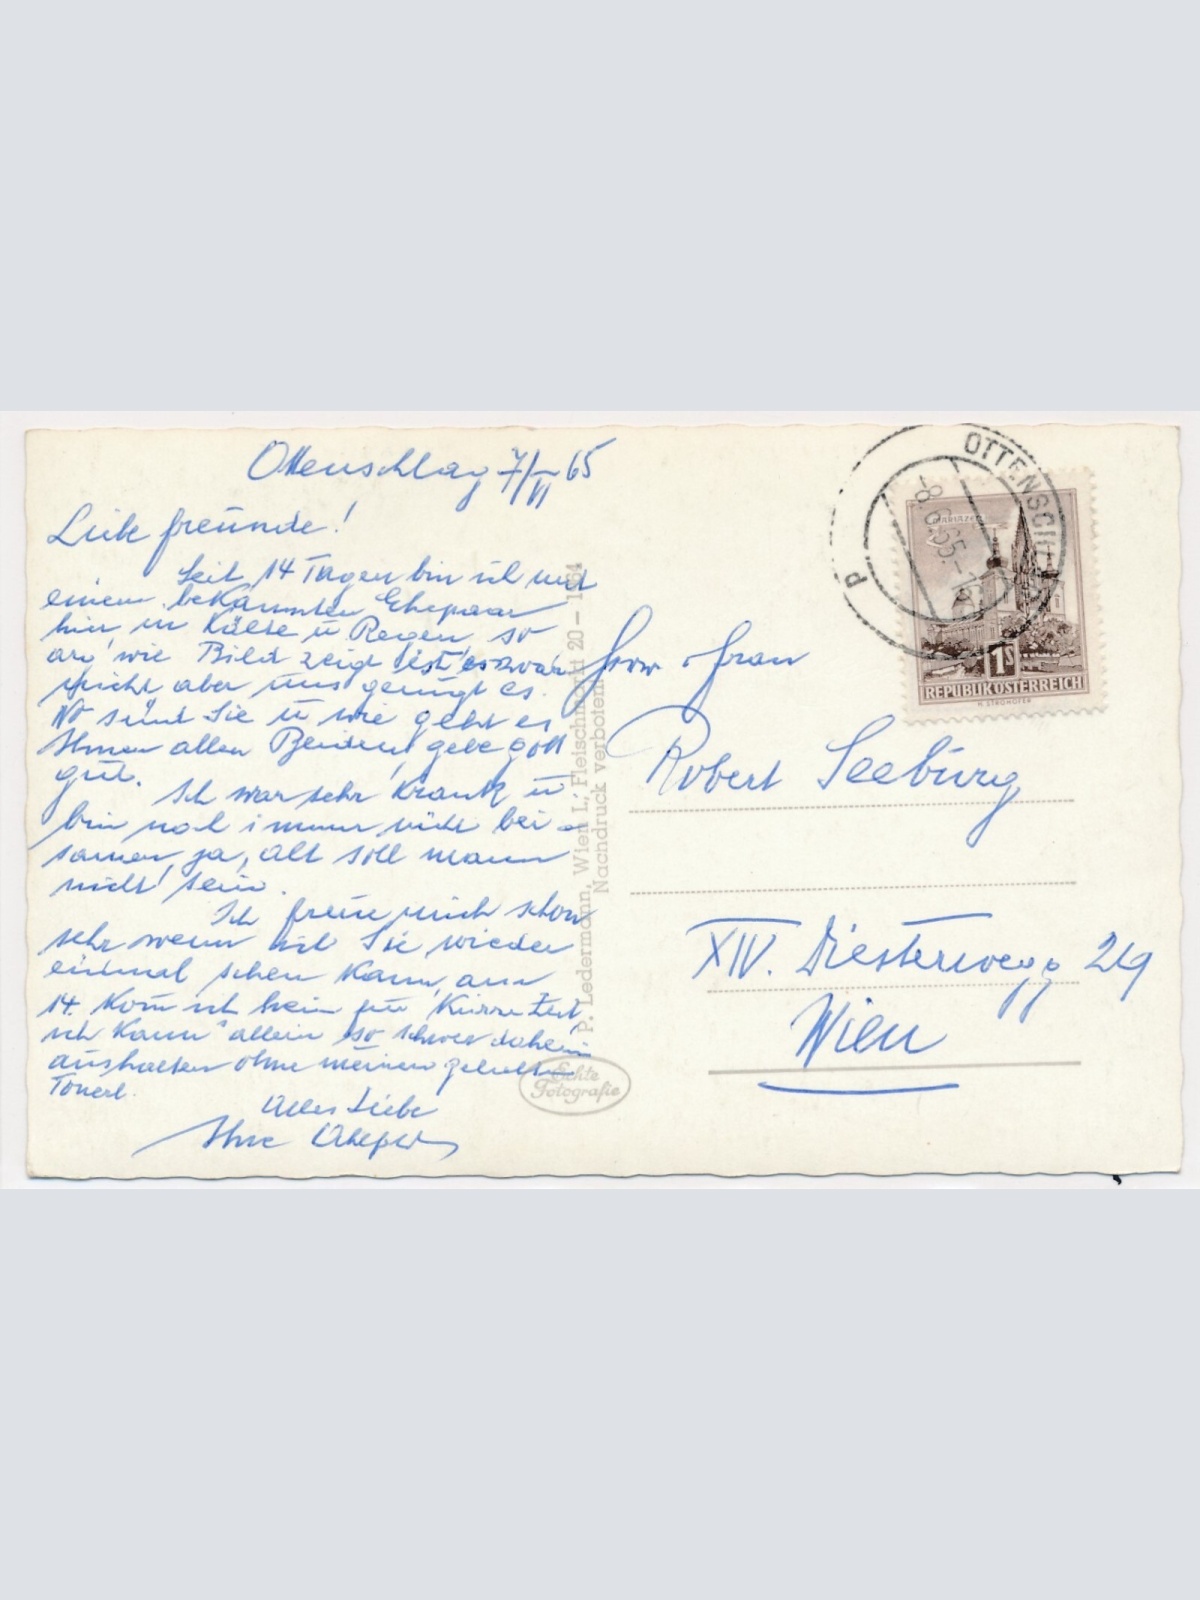 Ottenschlag 7/VI 65
Liebe Freunde!
Seit 14 Tagen bin ich mit
einem bekannten Ehepaar
hier in Kälte u Regen, so
arg wie Bild zeigt ist es zwar
nicht, aber uns genügt es.
Wo sind Sie u wie geht es
Ihnen allen Beiden, gebe Gott
gut.
Ich war sehr krank u.
bin noch immer nicht bei
samen, ja, alt soll mann
nicht sein.
Ich freue mich schon
sehr wenn ich Sie wieder
einmal sehen kann, am
14. kom ich heim für kurze Zeit
ich kann allein so schwer daheim
aushalten ohne meinen geliebten
Tonerl.
Alles Liebe
Ihre
P. Ledermann, Wien I., Fleischmarkt 20 – 1964
Nachdruck verboten
Echte
Fotografie
OTTENSCHLAG
-8.6.65.-1
P
1S
REPUBLIK ÖSTERREICH
Herrn Frau
Robert Seeburg
XIV. Diesterwegg 29
Wien